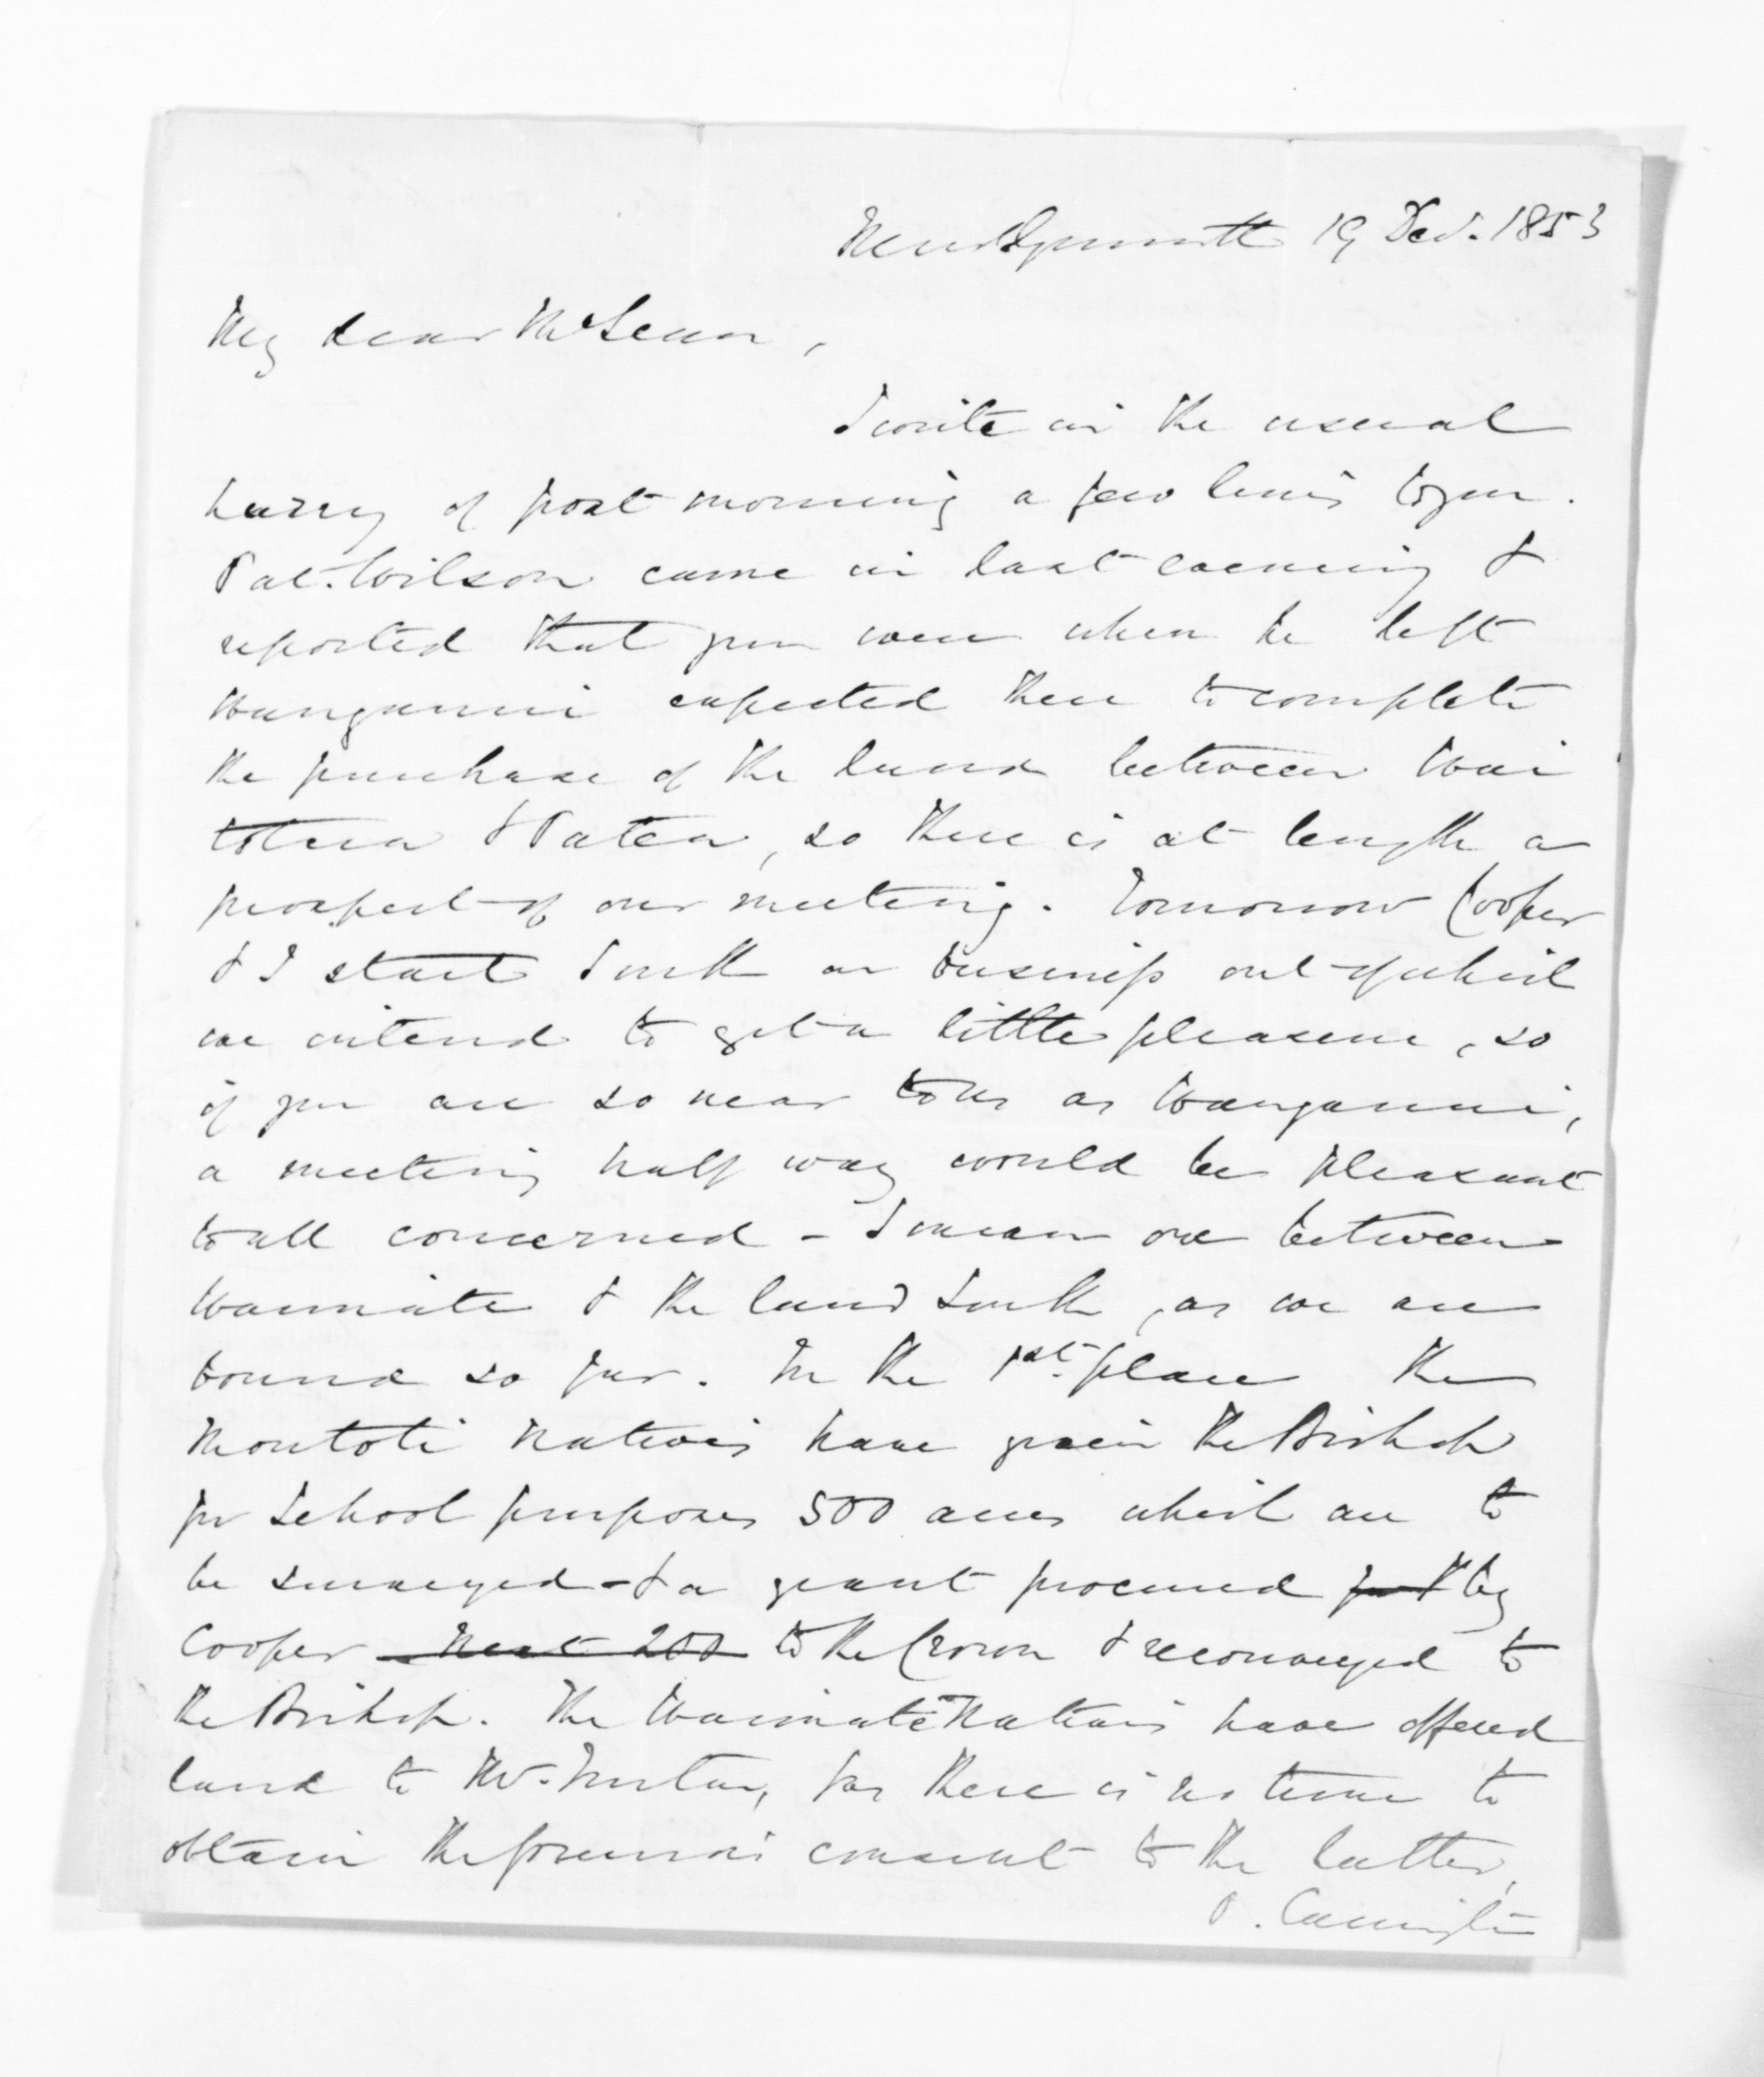 New Plymouth 19 Decr. 1853
My dear McLean,
I write in the usual
hurry of post morning a few lines to you.
Pat. Wilson came in last evening &
reported that you were when he left
Wanganui expected there to complete
the purchase of the land between Wai
totara & Patea, so there is at length a
prospect of our meeting. Tomorrow Cooper
& I start South on business out of which
we intend to get a little pleasure, so
if you are so near to us as Wanganui,
a meeting half way would be pleasant
to all concerned - I mean one between
Waimate & the land South, as we are
bound so far. In the 1st. place the
Moutoti Natives have given the Bishop
for School purposes 500 acres which are to
be surveyed & a grant procured by
Cooper Next 200 to the Crown & reconveyed to
the Bishop. The Waimate Natives have offered
land to Mr. for there is no time to
obtain the Governor's consent to the latter,